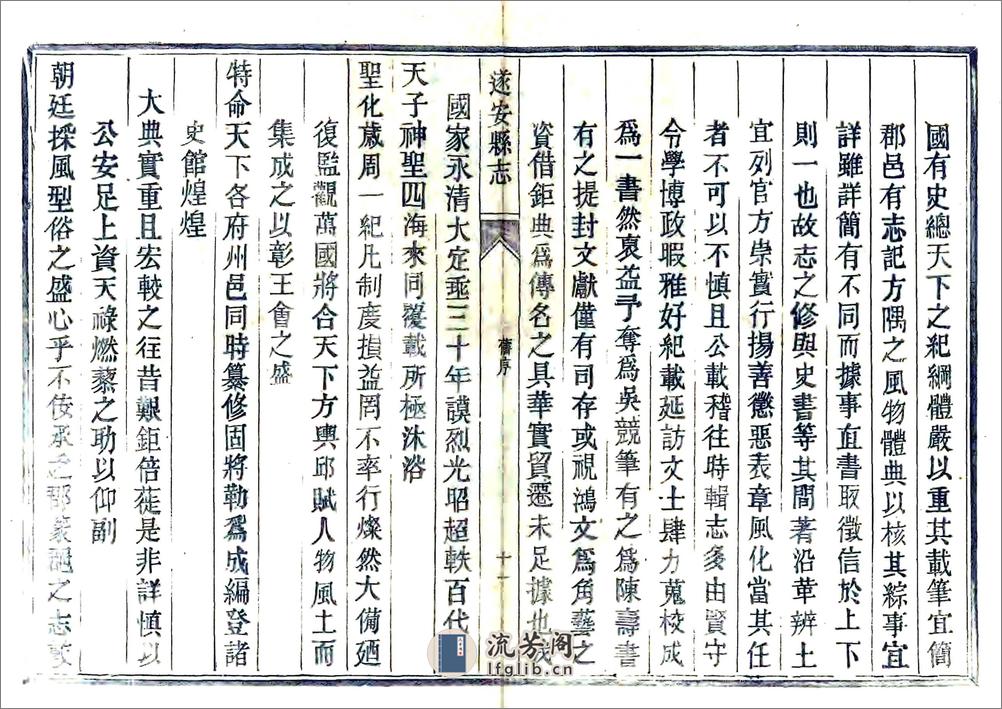 國有史總天下之紀綱體嚴以重其載筆宜簡
郡邑有志記方隅之風物體典以核其綜事宜
詳雖詳簡有不同而據事直書取徵信於上下
則一也故志之修與史書等其間著沿革辨土
宜列官方崇實行揚善懲惡表章風化當其任
者不可以不慎且公載稽往時輯志多由賢守
令學博政暇雅好紀載延訪文士肆力蒐校成
爲一書然裒益予奪爲吳競筆有之爲陳壽書
有之提封文獻僅有司存或視鴻文爲角藝之
資借鉅典爲傳名之具華實貿遷未足據也我
遂安縣志
舊序
十一
國家永清大定垂三十年謨烈光昭超軼百代
天子神聖四海來同覆載所極沐浴
聖化歲周一紀凡制度損益罔不率行燦然大備廼
復監觀萬國將合天下方輿邱賦人物風土而
集成之以彰王會之盛
特命天下各府州邑同時纂修固將勒爲成編登諸
史館煌煌
大典實重且宏較之往昔艱鉅倍蓰是非詳慎以
公安足上資天祿燃藜之助以仰副
朝廷採風型俗之盛心乎不佞承乏郡篆觽之志
流芳阁
lfglib.cn